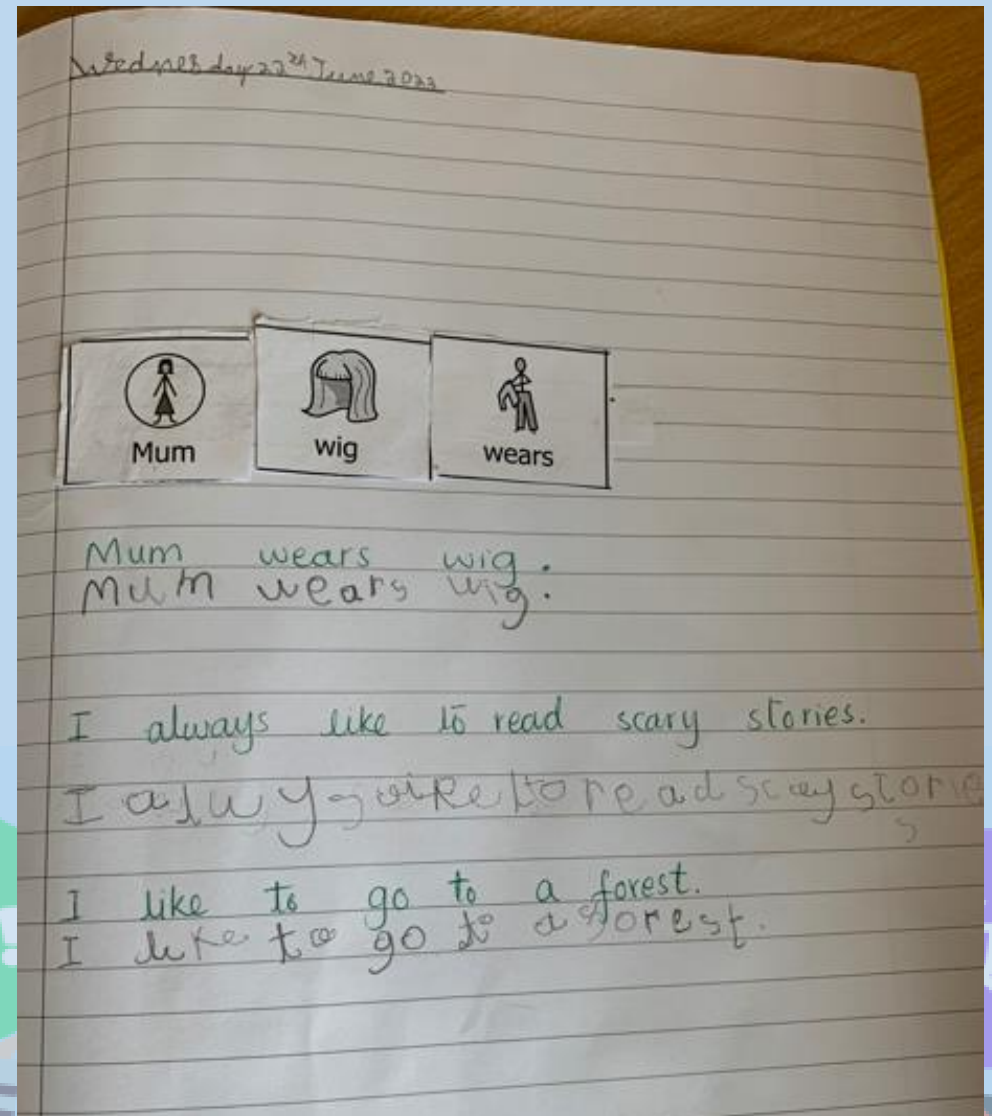 Wednesday 22nd June 2023
Mum wig wears
Mum wears wig.
Mum wears wig.
I always like to read scary stories.
I alwys like to read scay storie
s
I like to go to a forest.
I like to go to a forest.